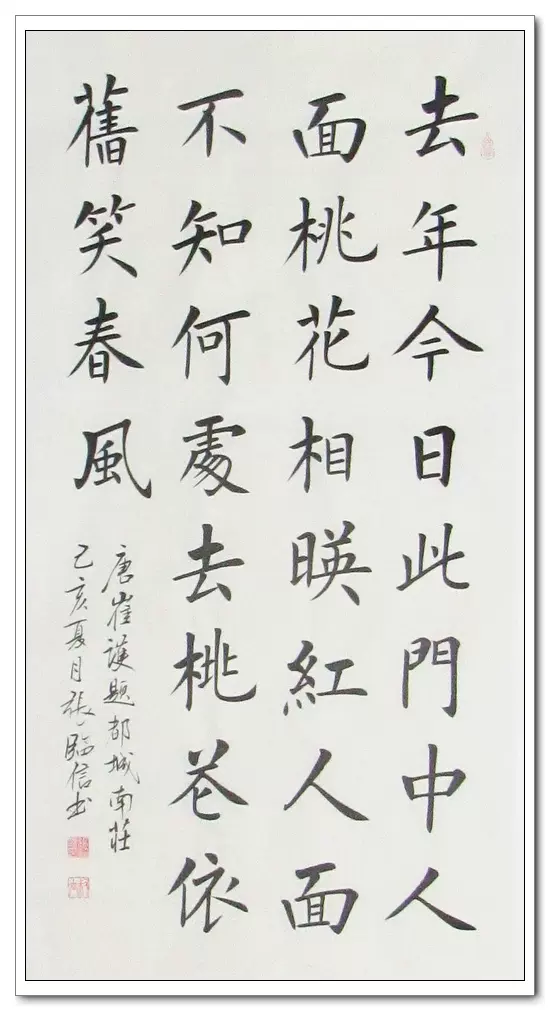 去年今日此門中人
面桃花相暎紅人面
不知何處去桃花依
舊笑春風
唐崔護題都城南莊
己亥夏月張臨信书